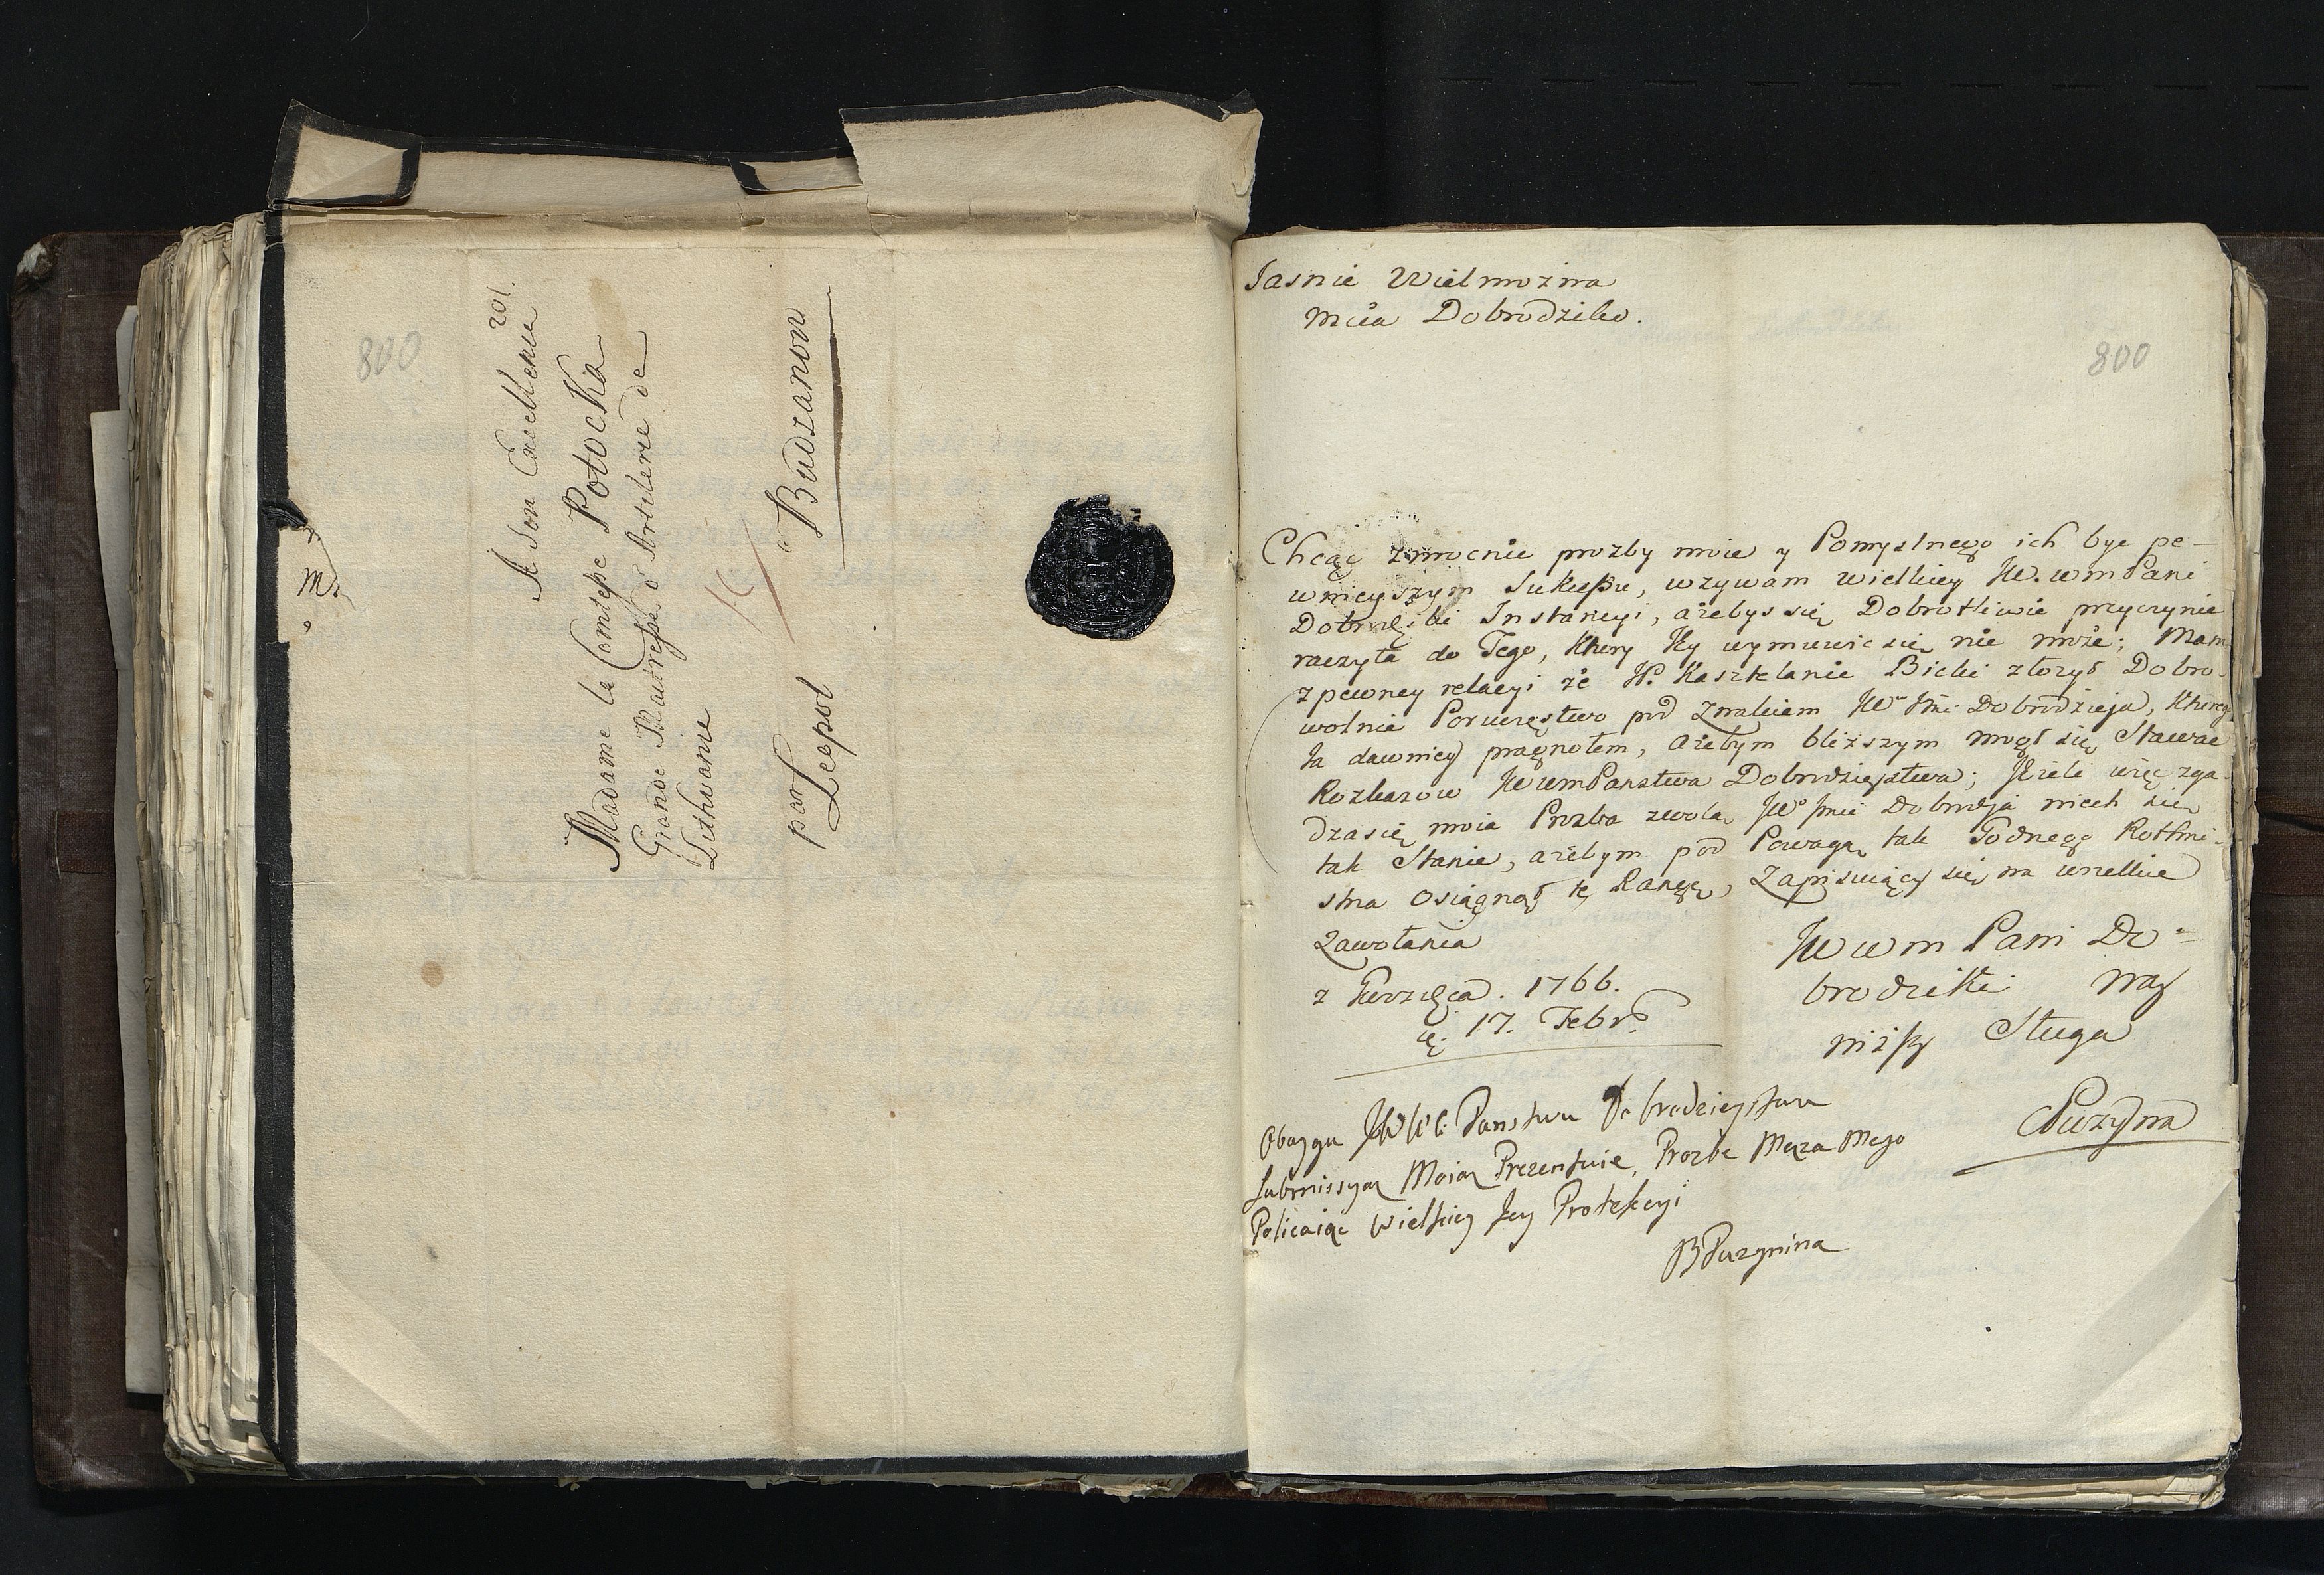 800
201.
A Son Excellence
Madame la Comtesse Potocka
Grande Maitresse d'Artilerie de
Lithuanie
par Leopol
a Budzanow
M.
Jasnie Wielmozna
Mcia Dobrodziko.
800
Chcąc zmocnić prozby moie y Pomyslnego ich być pe-
wnieyszym Sukcessu, wzywam wielkiey JW. WmPani
Dobrodziki Instancyi, ażebys się Dobrotliwie przyczynić
raczyła do Tego, Ktory Jey wymuwić się nie może; Mam
z pewney relacyi że JP. Kasztelanic Bielski złożył Dobro-
wolnie Porucręstwo pod Znakiem JWo Jmci Dobrodzieja, Ktorego
Ja dawniey pragnołem, ażebym bliższym mogł się Stawać
Rozkazow JWWmPanstwa Dobrodzieystwa; Jeżeli więc zga-
dza się moia Prozba z wolą JWo Jmci Dobrodzja niech się
tak Stanie, ażebym pod Powagą tak Godnego Rothmi-
stra osiągnął tę Rangę, Zapisuiący się na wszelkie
Zawołania
JWWm Pani Do-
brodziki nay
niższy Sługa
z 1766.
d. 17. Febr.
CPuzyna
Oboyga JWW: Panstwu Dobrodzieystwu
Submissyą Moią Prezentuie, Prozbe Męza Mego
Policaiąc Wielkiey Jey Protekcyi
BPuzynina